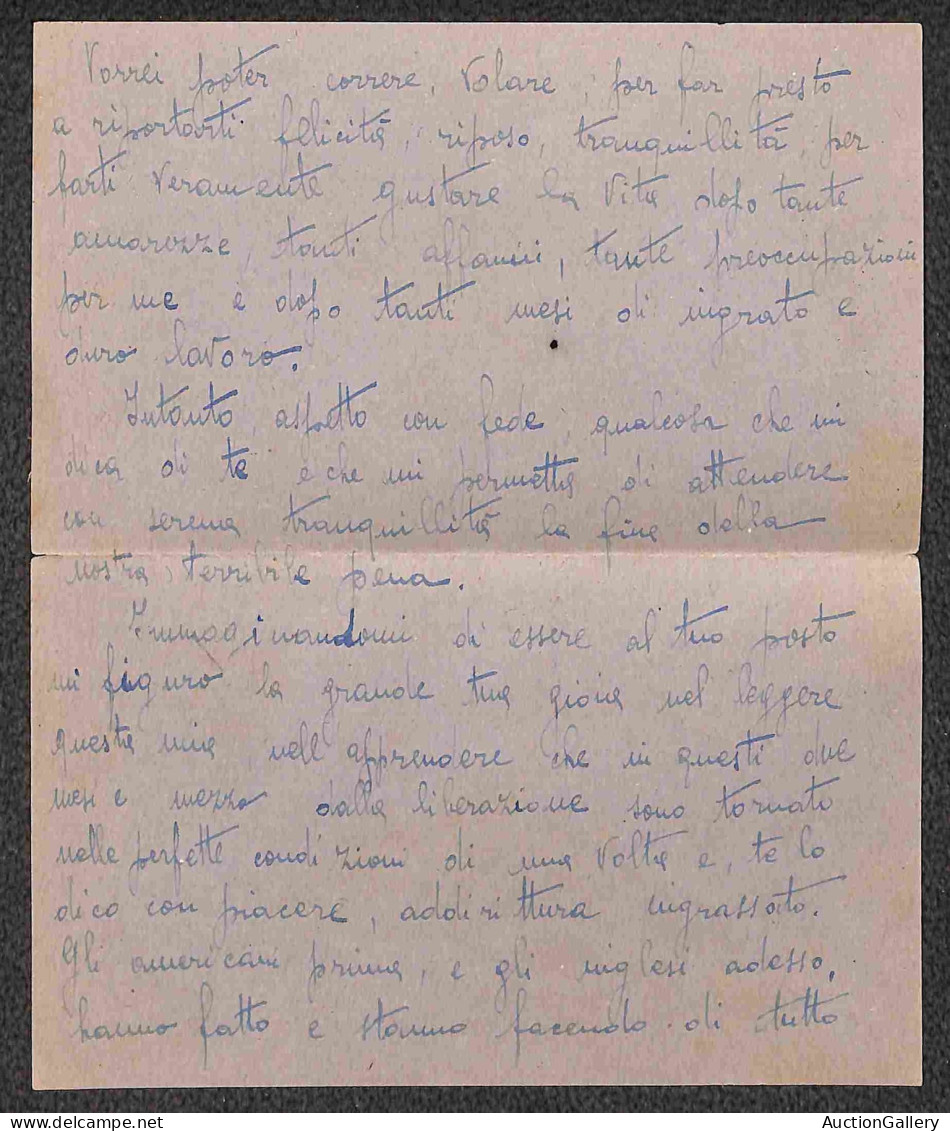 Vorrei poter correre, volare, per far presto
a riportarti felicità, riposo, tranquillità, per
farti veramente gustare la vita dopo tante
amarezze, tanti affanni, tante preoccupazioni
per me e dopo tanti mesi di ingrato e
duro lavoro.
Intanto, aspetto con fede, qualcosa che mi
dica di te e che mi permetta di attendere
con serena tranquillità la fine della
nostra terribile pena.
Immaginandomi di essere al tuo posto
mi figuro la grande tua gioia nel leggere
questa mia, nell'apprendere che in questi due
mesi e mezzo dalla liberazione sono tornato
nelle perfette condizioni di una volta e, te lo
dico con piacere, addirittura ingrassato.
Gli americani prima, e gli inglesi adesso,
hanno fatto e stanno facendo di tutto
AuctionGallery